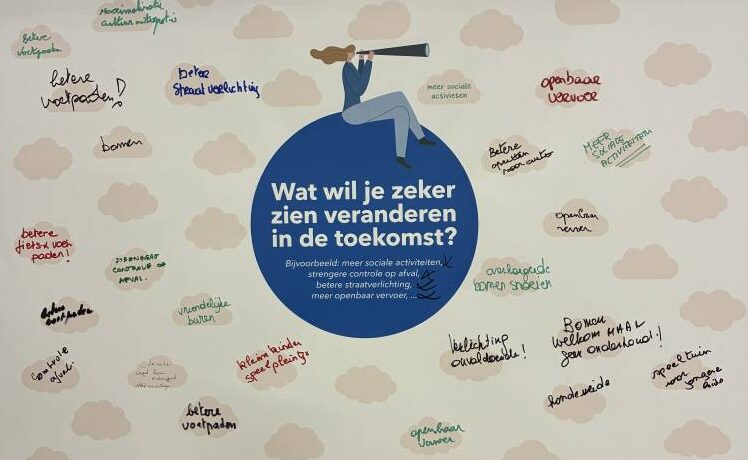 Betere
voetpaden
betere
voetpaden!
betere
straatverlichting
meer sociale
activiteiten
openbaar
vervoer
bomen
Betere
MEER
SOCIALE
ACTIVITEITEN
Wat wil je zeker
zien veranderen
in de toekomst?
Bijvoorbeeld: meer sociale activiteiten,
strengere controle op afval,
betere straatverlichting,
meer openbaar vervoer, ...
openbaar
vervoer
betere
fiets- & voet
paden!
STRENGERE
CONTROLE OP
AFVAL.
overhangende
bomen snoeien
betere
voetpaden
vriendelijke
buren
Verlichting
onvoldoende!
Bomen
welkom MAAR
geen onderhoud!
controle
afval.
kleine kinder
speelpleintje
speeltuin
voor
jongere
kids
hondeweide
betere
voetpaden
openbaar
vervoer